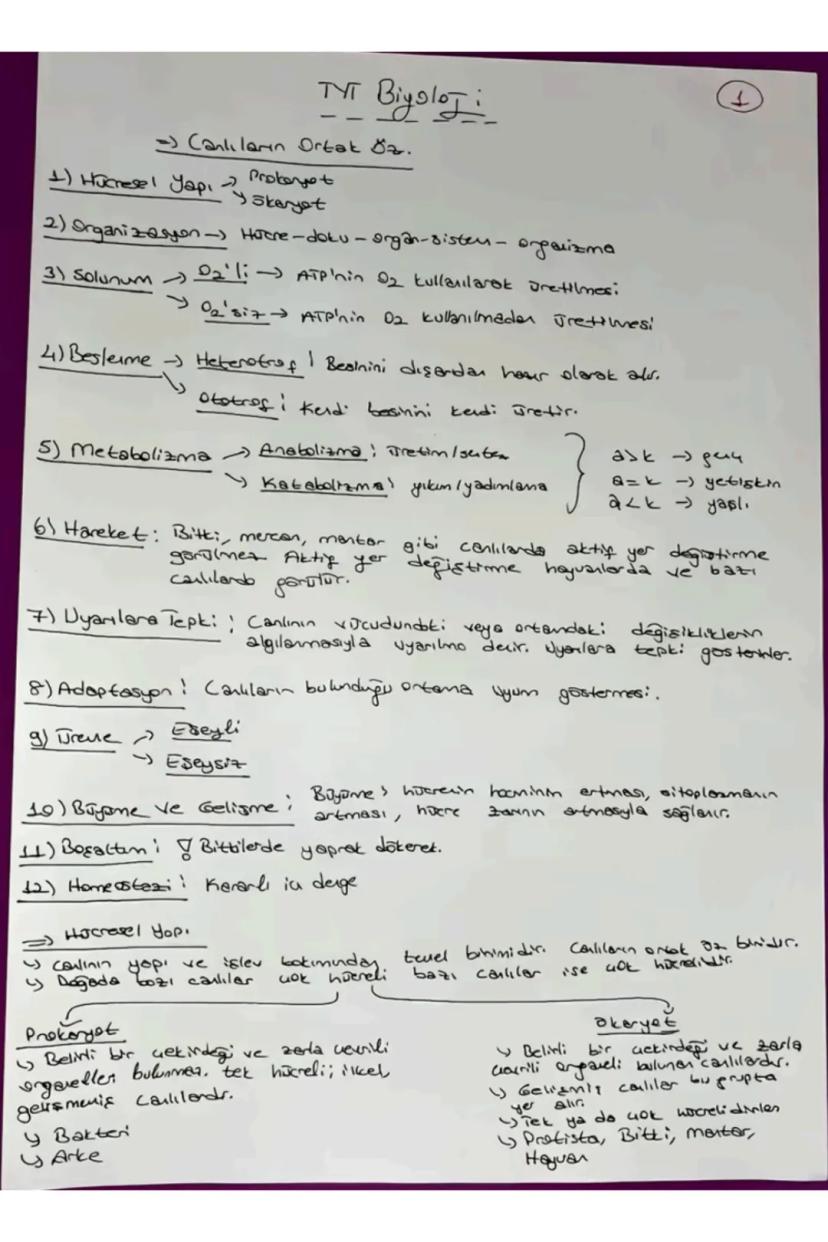 TYT Biyoloji
1
=> Canlıların Ortak Öz.
1) Hücresel Yapı → Prokaryot
↘ Ökaryot
2) Organizasyon → Hücre-doku-organ-sistem-organizma
3) Solunum → O2'li → ATP'nin O2 kullanılarak üretilmesi
↘ O2'siz → ATP'nin O2 kullanılmadan üretilmesi
4) Beslenme → Heterotrof: Besinini dışarıdan hazır olarak alır.
↘ Ototrof: Kendi besinini kendi üretir.
5) Metabolizma → Anabolizma: üretim/sentez
↘ Katabolizma: yıkım/yadımlama
a>k → genç
a=k → yetişkin
a<k → yaşlı
6) Hareket: Bitki, mercan, mantar gibi canlılarda aktif yer değiştirme
görülmez. Aktif yer değiştirme hayvanlarda ve bazı
canlılarda görülür.
7) Uyarılara Tepki: Canlının vücudundaki veya ortamdaki değişikliklerin
algılanmasıyla uyarılma denir. Uyarılara tepki gösterirler.
8) Adaptasyon: Canlıların bulunduğu ortama uyum göstermesi.
9) Üreme → Eşeyli
→ Eşeysiz
10) Büyüme ve Gelişme: Büyüme; hücrenin hacminin artması, sitoplazmanın
artması, hücre zarının artmasıyla sağlanır.
11) Boşaltım: ! Bitkilerde yaprak dökerek.
12) Homeostazi: Kararlı iç denge
=> Hücresel Yapı
↳ Canlının yapı ve işlev bakımından temel birimidir. Canlıların ortak öz biridir.
↳ Doğada bazı canlılar çok hücreli bazı canlılar ise çok hücrelidir.
Prokaryot
↳ Belirli bir çekirdeği ve zarla çevrili
organeller bulunmaz. tek hücreli; ilkel
gelişmemiş canlılardır.
↳ Bakteri
↳ Arke
Ökaryot
↳ Belirli bir çekirdeği ve zarla
çevrili organeli bulunan canlılardır.
↳ Gelişmiş canlılar bu grupta
yer alır.
↳ Tek ya da çok hücrelidirler
↳ Protista, Bitki, mantar,
Hayvan